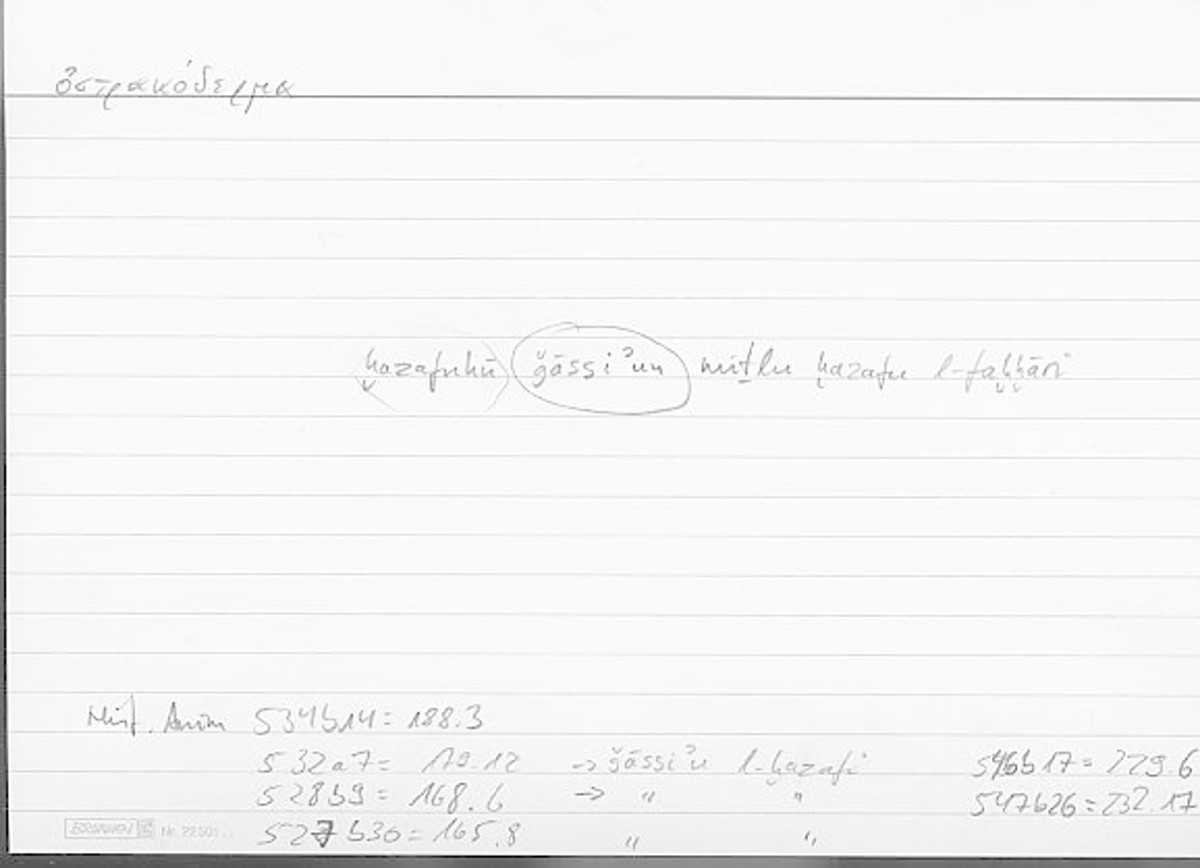 ὀστρακόδερμα
ḫazafuhū ǧāssiʾun miṯlu ḫazafu l-faḫḫāri
Hist. Anim 534b14 = 188.3
532a7 = 179.12 → ǧāssiʾu l-ḫazafi 546b17 = 229.6
528b9 = 168.6 → " " 547b26 = 232.17
527b30 = 165.8 " "
BRUNNEN Nr. 22501